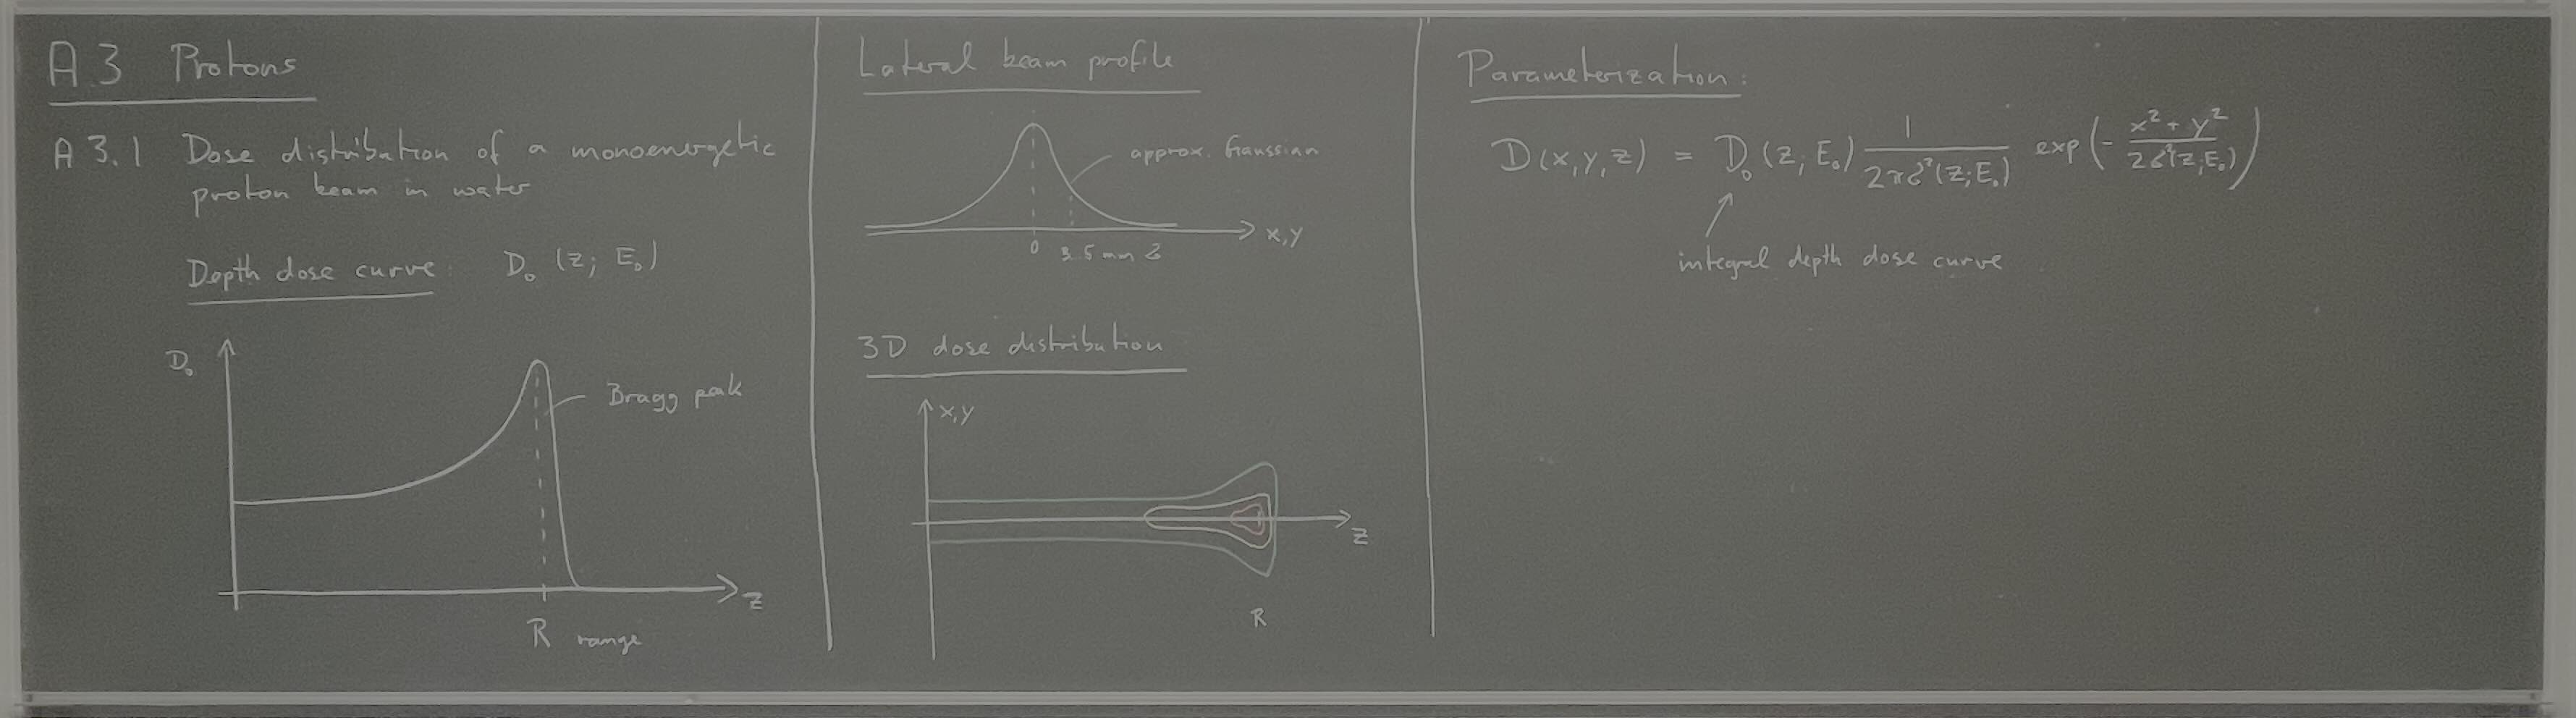 A 3 Protons
A 3.1 Dose distribution of a monoenergetic
proton beam in water
Depth dose curve: D₀ (z; E₀)
D₀
Bragg peak
z
R range
Lateral beam profile
approx. Gaussian
x,y
0 3.5 mm σ
3D dose distribution
x,y
z
R
Parameterization:
D(x,y,z) = D₀(z; E₀) 1/(2πσ²(z;E₀)) exp(- (x² + y²)/(2σ²(z;E₀)))
integral depth dose curve